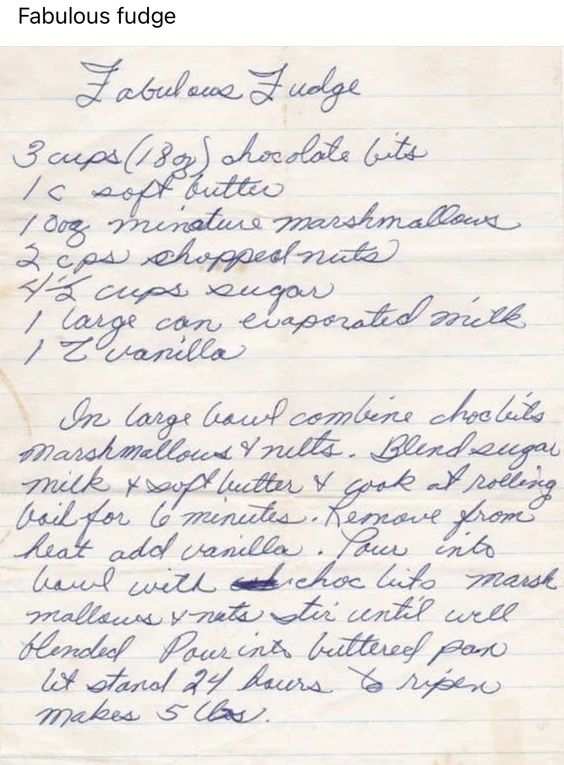 Fabulous fudge
Fabulous Fudge
3 cups (18 oz) chocolate bits
1 c soft butter
10oz minature marshmallows
2 cps chopped nuts
4 1/2 cups sugar
1 large can evaporated milk
1 T vanilla
In large bowl combine choc bits
marshmallows & nuts. Blend sugar
milk & soft butter & cook at rolling
boil for 6 minutes. Remove from
heat add vanilla. Pour into
bowl with choc bits marsh
mallows & nuts stir until well
blended Pour into buttered pan
let stand 24 hours to ripen
makes 5 lbs.